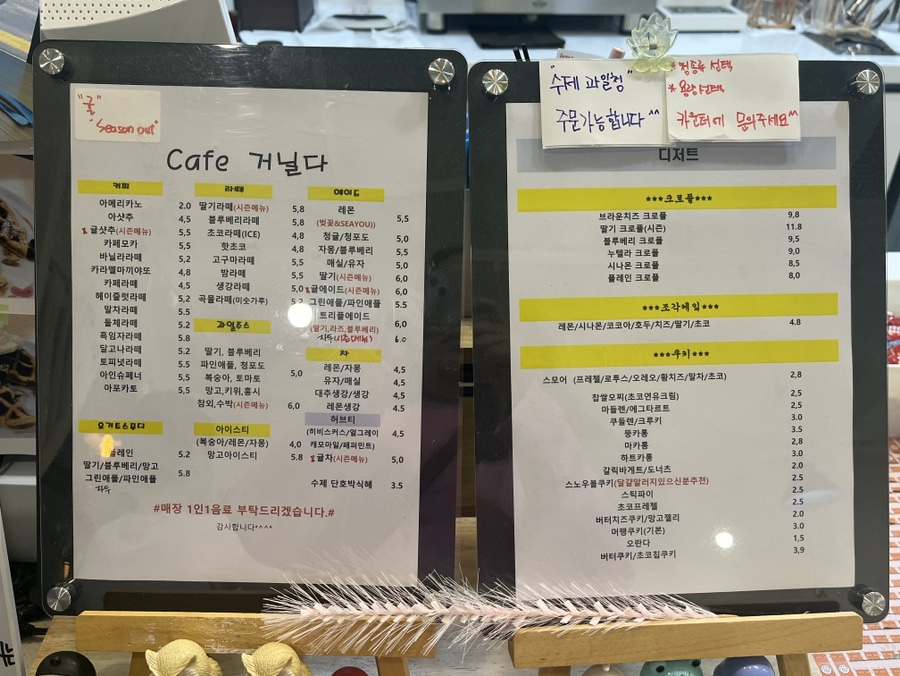 "귤"
Season out"
Cafe 거닐다
커피
아메리카노 2.0
아샷추 4,5
귤샷추(시즌메뉴) 5,5
카페모카 5,2
바닐라라떼 5,2
카라멜마끼야또 5,2
카페라떼 4,5
헤이즐럿라떼 5,2
말차라떼 5.5
돌체라떼 5.2
흑임자라떼 5.8
달고나라떼 5.2
토피넛라떼 5.5
아인슈페너 5.5
아포카토 5.5
요거트스무디
플레인 5.2
딸기/블루베리/망고
그린애플/파인애플 5.8
자두
라떼
딸기라떼(시즌메뉴) 5,8
블루베리라떼 5,8
초코라떼(ICE) 4,8
핫초코 4,8
고구마라떼 5,5
밤라떼 5,5
생강라떼 5,0
곡물라떼(미숫가루) 5.2
과일쥬스
딸기, 블루베리
파인애플, 청포도
복숭아, 토마토 5,0
망고,키위,홍시
참외,수박(시즌메뉴) 6,0
아이스티
(복숭아/레몬/자몽) 4,0
망고아이스티 5.8
에이드
레몬 5,5
(벚꽃&SEAYOU))
청귤/청포도 5,0
자몽/블루베리 5,5
매실/유자 5,0
딸기(시즌메뉴) 6,0
귤에이드(시즌메뉴) 6,0
그린애플/파인애플 5.5
트리플에이드 6,0
(딸기,라즈,블루베리)
자두(시즌메뉴) 6.0
차
레몬/자몽 4,5
유자/매실 4,5
대추생강/생강 4,5
레몬생강 4,5
허브티
(히비스커스/얼그레이 4,5
캐모마일/페퍼민트)
귤차(시즌메뉴) 5,0
수제 단호박식혜 3.5
#매장 1인1음료 부탁드리겠습니다.#
감사합니다*^^*
"수제 과일청"
주문가능합니다^^
*청종류 선택
*용량선택
카운터에 문의주세요^^
디저트
***크로플***
브라운치즈 크로플 9,8
딸기 크로플(시즌) 11.8
블루베리 크로플 9,5
누텔라 크로플 9,0
시나몬 크로플 8,5
플레인 크로플 8,0
***조각케잌***
레몬/시나몬/코코아/호두/치즈/딸기/초코 4.8
***쿠키***
스모어 (프레첼/로투스/오레오/황치즈/말차/초코) 2,8
찹쌀모찌(초코연유크림) 2,5
마들렌/에그타르트 2,5
쿠들렌/크루키 3.0
뚱카롱 3.5
마카롱 2,8
하트카롱 3.0
갈릭바게트/도너츠 2.0
스노우볼쿠키(달걀알러지있으신분추천) 2.5
스틱파이 2.5
초코프레첼 2.5
버터치즈쿠키/망고젤리 2.0
머랭쿠키(기본) 3.0
오란다 1,5
버터쿠키/초코칩쿠키 3,9